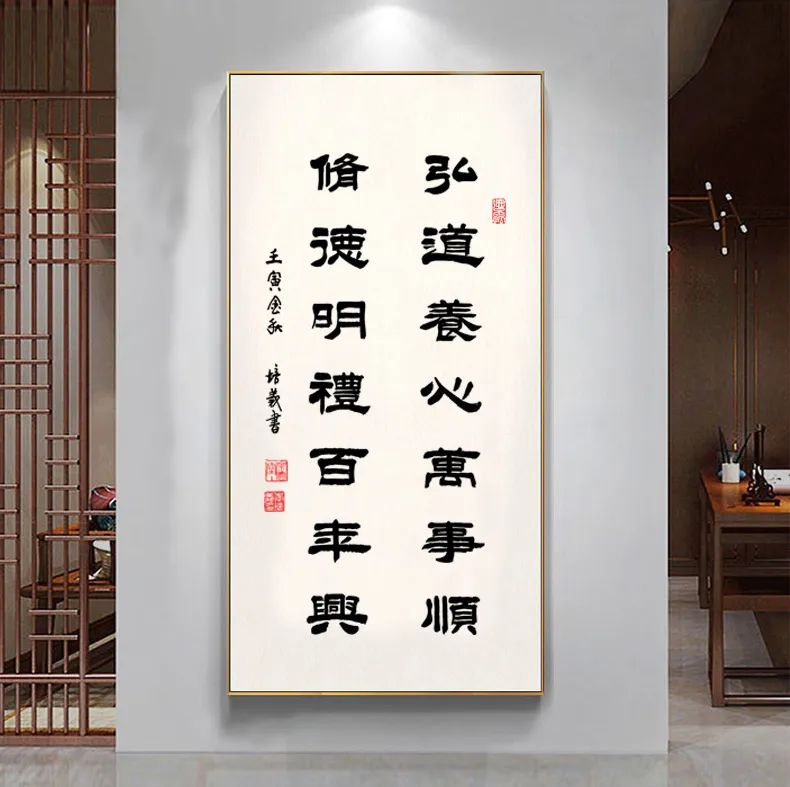 弘道養心萬事順
脩德明禮百年興
壬寅金秋 培義書